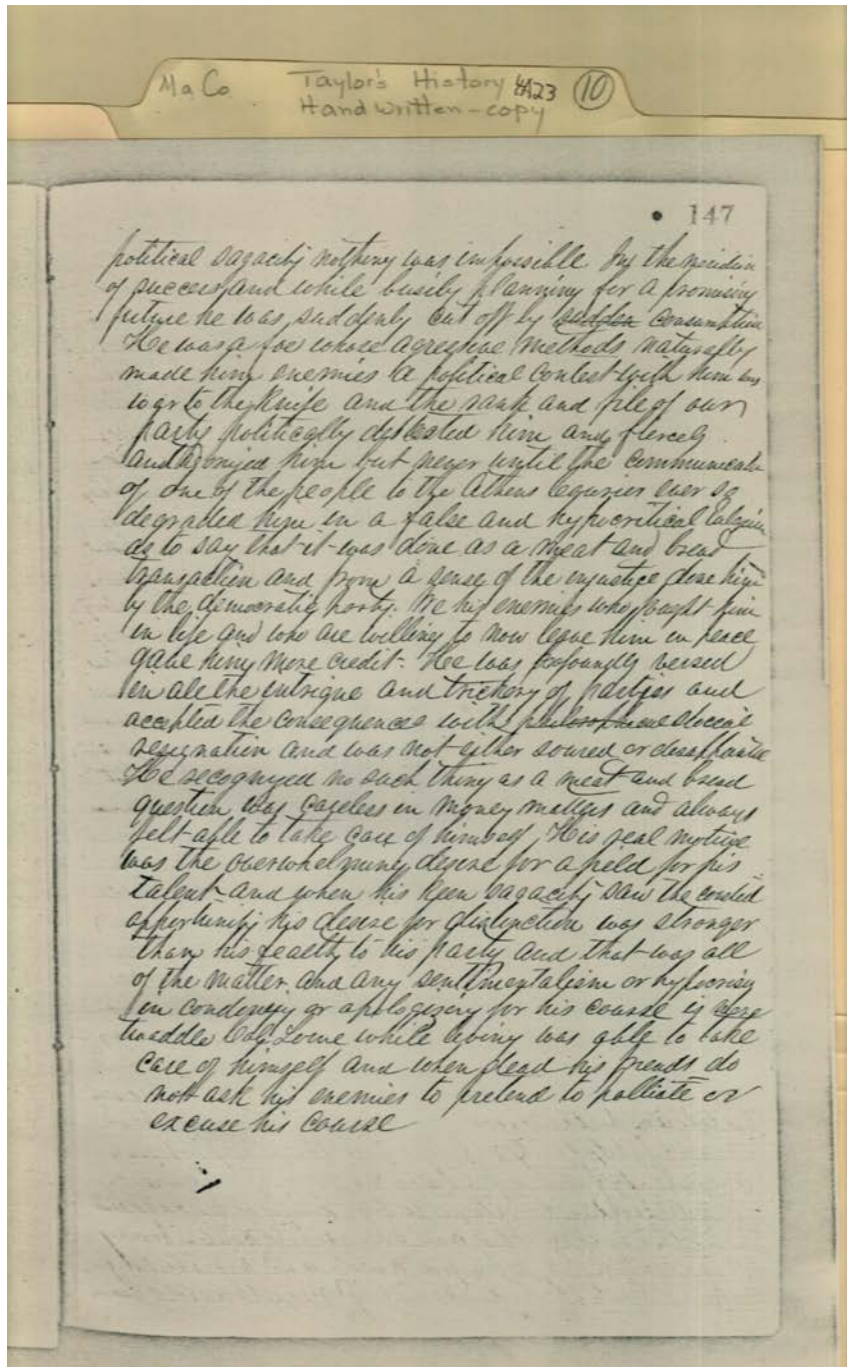 Ma Co Taylor's History 4A23 10
Handwritten - copy
147
political sagacity nothing was impossible In the meridian
of success and while busily planning for a promising
future he was suddenly cut off by sudden consumption
He was a foe whose agressive methods naturally
made him enemies a political contest with him was
war to the knife and the rank and file of our
party politically detested him and fiercely
antagonized him but never until the communicatn
of one of the people to the Athens ever so
degraded him in a false and hypocritical Eulogium
as to say that it was done as a meat and bread
transaction and from a sense of the injustice done him
by the democratic party. We his enemies who fought him
in life and who are willing to now leave him in peace
gave him more credit. He was profoundly versed
in all the intrigue and trickery of parties and
accepted the consequences with stoical
resignation and was not either soured or
He recognized no such thing as a meat and bread
question was careless in money matters and always
felt able to take care of himself, His real motive
was the overwhelming desire for a field for his
talent and when his keen sagacity saw the coveted
opportunity his desire for distinction was stronger
than his fealty to his party and that was all
of the matter, and any sentimentalism or hypocrisy
in or apologising for his course is mere
twaddle Col. Lowe while living was able to take
care of himself and when dead his friends do
not ask his enemies to pretend to palliate or
excuse his course